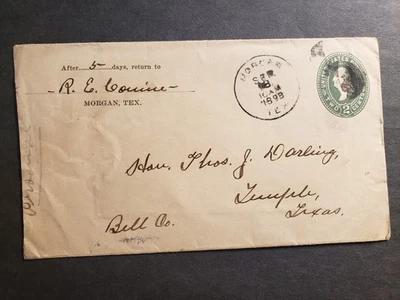 After 5 days, return to
R. E. Conine
MORGAN, TEX.
MORGAN
SEP
10AM
1898
TEX.
UNITED STATES
TWO 2 CENTS
Hon. Thos. J. Darling,
Temple,
Texas.
Bell Co.